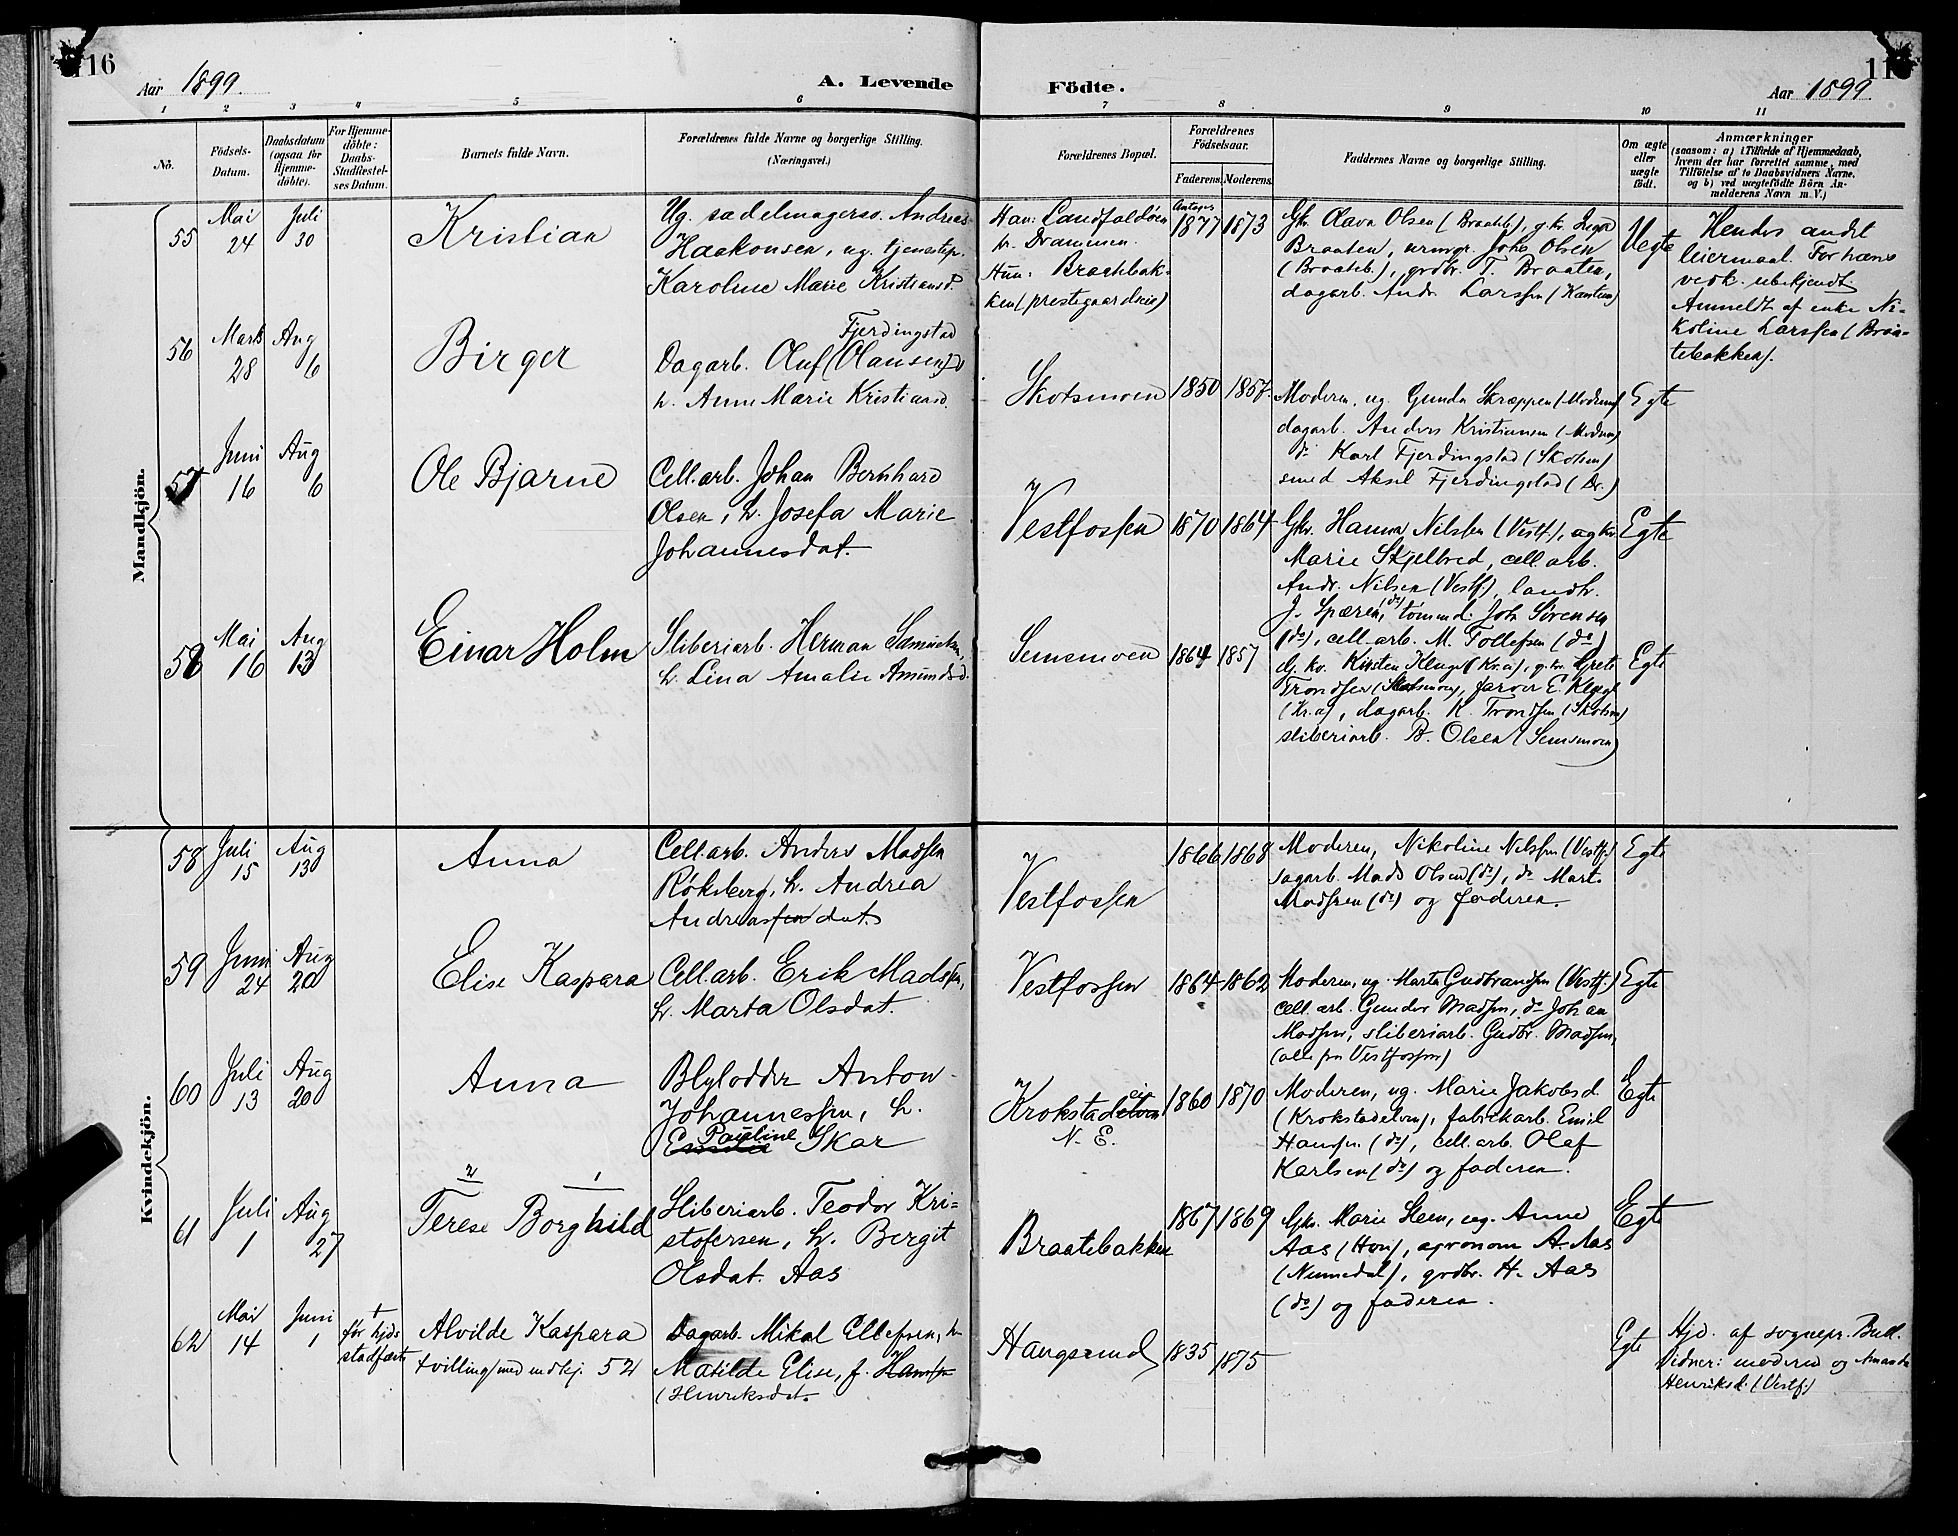 116
Aar 1899.
A. Levende
Födte.
Aar 1899
1 2 3 4 5 6 7 8 9 10 11
No.
Födsels-
Datum.
Daabsdatum
(ogsaa for
Hjemme-
döbte).
For Hjemme-
döbte:
Daabs-
Stadfæstel-
ses Datum.
Barnets fulde Navn.
Forældrenes fulde Navne og borgerlige Stilling.
(Næringsvei.)
Forældrenes Bopæl.
Forældrenes
Födselsaar.
Faderens. Moderens.
Faddernes Navne og borgerlige Stilling.
Om ægte
eller
uægte
födt.
Anmærkninger
(saasom: a) i Tilfælde af Hjemmedaab,
hvem der har forrettet samme, med
Tilföielse af to Daabsvidners Navne,
og b) ved uægtefödte Börn An-
melderens Navn m. V.)
Mandkjön.
55
Mai
24
Juli
30
Kristian
Ug. sadelmagersv. Andreas
Haakonsen, ug. tjenestep.
Karoline Marie Kristiansd.
Han: Landfaldöen
v. Drammen.
Hun: Braatebak-
ken (prestegaardseie)
Antages
1877
1873
Gkv. Olava Olsen (Braateb), g.kv. Inga
Braaten, urmgr. Johs Olsen
(Braateb.), grdbr. T. Braaten,
dagarb. Andr. Larssen
Uegte
Hendes andet
leiermaal. For hans
vedk. ubekjendt.
Anmeldt af enke Ni-
koline Larssen (Braa-
tebakken).
56
Marts
28
Aug
6
Birger
Fjerdingstad
Dagarb. Oluf (Olausen)
h. Anne Marie Kristiansd.
Skotsmoen
1850
1857.
Moderen, ug. Gunda Skræppen (Modum)
dagarb. Anders Kristiansen (Modum)
do Karl Fjerdingstad (Skotsm)
smed Aksel Fjerdingstad (Dr.)
Egte
57
Juni
16
Aug
6
Ole Bjarne
Cell.arb. Johan Bernhard
Olsen, h. Josefa Marie
Johannesdat.
Vestfossen
1870
1864
Gkv. Hanna Nilssen (Vestf.), ug kv.
Marie Skjelbred, cell.arb.
Andr. Nilsen (Vestf), landh.
J. Spæren (do), tömmd. Joh Sörensen
(do), cell.arb. M. Tollefsen (do)
Egte
58
Mai
16
Aug
13
Einar Holm
Sliberiarb. Herman Samuelsen
h. Lina Amalie Amundsd.
Semsmoen
1864
1857
G.kv. Kirsten (Kr.a), g.kv. Grete
Trondsen (Skotsmoen), farver E.
(Kr.a), dagarb. K. Trondsen (Skotsm)
sliberiarb. B. Olsen (Semsmoen)
Egte
Kvindekjön.
58
Juli
15
Aug
13
Anna
Cell.arb. Anders Madsen
Röksberg, h. Andrea
Andreassen dat.
Vestfossen
1866
1868
Moderen, Nikoline Nilssen (Vestf.)
sagarb. Mads Olsen (do), do Mart.
Madssen (do) og faderen.
Egte
59
Juni
24
Aug
20
Elise Kaspara
Cell.arb. Erik Madssen,
h. Marta Olsdat.
Vestfossen
1864
1862
Moderen, ug. Marta Gudbrandsen (Vestf.)
cell.arb. Gunder Madssen, do Johan
Madssen, sliberiarb. Gudbr. Madssen,
(alle fra Vestfossen)
Egte
60
Juli
13
Aug
20
Anna
Blylodder Anton
Johannessen, h.
Pauline
Skar
Krokstadelven
N. E.
1860
1870
Moderen, ug. Marie Jakobsd
(Krokstadelven), fabrikarb. Emil
Hansen (do), cell.arb. Olaf
Karlsen (do) og faderen.
Egte
61
Juli
1
Aug
27
2 1
Terese Borghild
Sliberiarb. Teodor Kri-
stofersen, h. Bergit
Olsdat. Aas
Braatebakken
1867
1869
Gkv. Marie Steen, ug. Anne
Aas (Hon), agronom A. Aas
(Numedal), grdbr. H. Aas
(do) og faderen.
Egte
62
Mai
14
Juni
1
†
för hjds
stadfæst.
Alvilde Kaspara
tvilling med mdkj. 52
Dagarb. Mikal Ellefsen, h.
Matilde Elise, f. Hansen
(Henriksdat.
Haugsrud
1835
1875
Egte
Hjd. af sognepr. Bull.
Vidner: moderen og Amanda
Henriksd. (Vestf.)